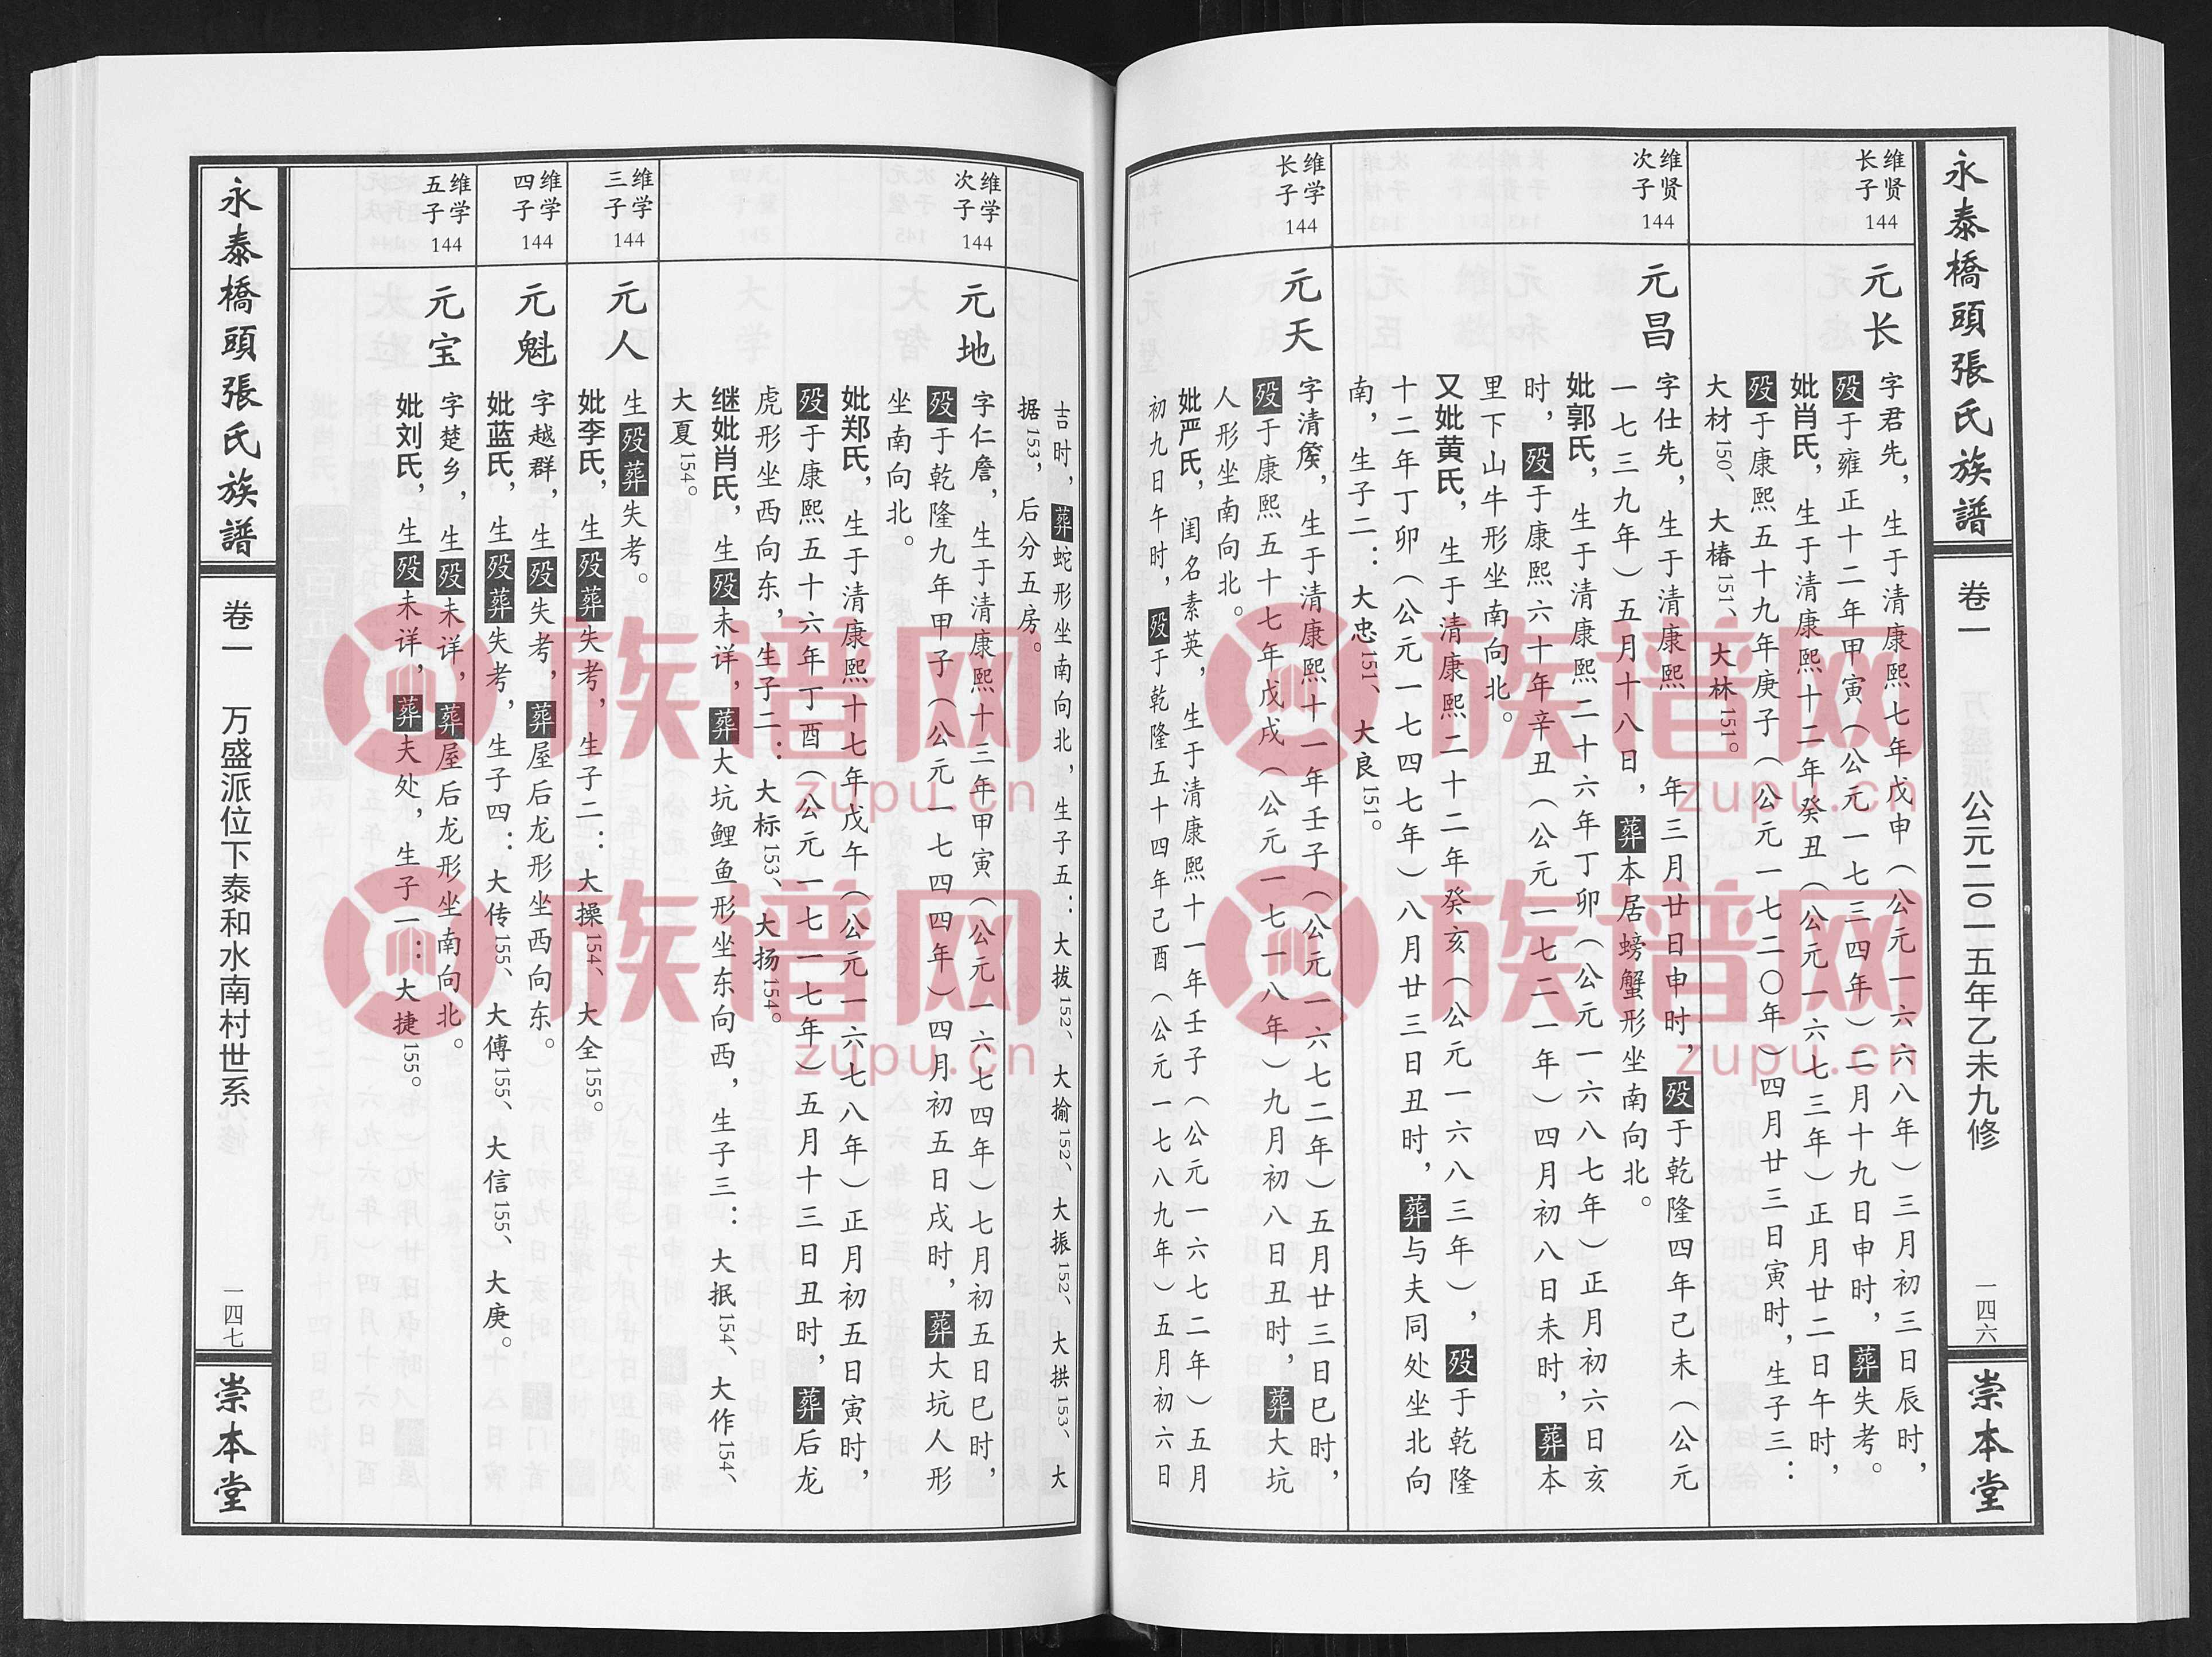 永泰橋頭張氏族譜
卷一
公元二〇一五年乙未九修
一四六
崇本堂
维贤
长子
144
元长
字君先，生于清康熙七年戊申（公元一六六八年）三月初三日辰时，
殁于雍正十二年甲寅（公元一七三四年）二月十九日申时，葬失考。
妣肖氏，生于清康熙十二年癸丑（公元一六七三年）正月廿二日午时，
殁于康熙五十九年庚子（公元一七二〇年）四月廿三日寅时，生子三：
大材150、大椿151、大林151。
维贤
次子
144
元昌
字仕先，生于清康熙　　年三月廿日申时，殁于乾隆四年己未（公元
一七三九年）五月十八日，葬本居螃蟹形坐南向北。
妣郭氏，生于清康熙二十六年丁卯（公元一六八七年）正月初六日亥
时，殁于康熙六十年辛丑（公元一七二一年）四月初八日未时，葬本
里下山牛形坐南向北。
又妣黄氏，生于清康熙二十二年癸亥（公元一六八三年），殁于乾隆
十二年丁卯（公元一七四七年）八月廿三日丑时，葬与夫同处坐北向
南，生子二：大忠151、大良151。
维学
长子
144
元天
字清，生于清康熙十一年壬子（公元一六七二年）五月廿三日巳时，
殁于康熙五十七年戊戌（公元一七一八年）九月初八日丑时，葬大坑
人形坐南向北。
妣严氏，闺名素英，生于清康熙十一年壬子（公元一六七二年）五月
初九日午时，殁于乾隆五十四年己酉（公元一七八九年）五月初六日
吉时，葬蛇形坐南向北，生子五：大拔152、大揄152、大振152、大拱153、大
据153，后分五房。
维学
次子
144
元地
字仁詹，生于清康熙十三年甲寅（公元一六七四年）七月初五日巳时，
殁于乾隆九年甲子（公元一七四四年）四月初五日戌时，葬大坑人形
坐南向北。
妣郑氏，生于清康熙十七年戊午（公元一六七八年）正月初五日寅时，
殁于康熙五十六年丁酉（公元一七一七年）五月十三日丑时，葬后龙
虎形坐西向东，生子二：大标153、大扬154。
继妣肖氏，生殁未详，葬大坑鲤鱼形坐东向西，生子三：大抿154、大作154、
大夏154。
维学
三子
144
元人
生殁葬失考。
妣李氏，生殁葬失考，生子二：大操154、大全155。
维学
四子
144
元魁
字越群，生殁失考，葬屋后龙形坐西向东。
妣蓝氏，生殁葬失考，生子四：大传155、大傅155、大信155、大庚。
维学
五子
144
元宝
字楚乡，生殁未详，葬屋后龙形坐南向北。
妣刘氏，生殁未详，葬夫处，生子一：大捷155。
永泰橋頭張氏族譜
卷一
万盛派位下泰和水南村世系
一四七
崇本堂
族谱网
zupu.cn
族谱网
zupu.cn
族谱网
zupu.cn
族谱网
zupu.cn